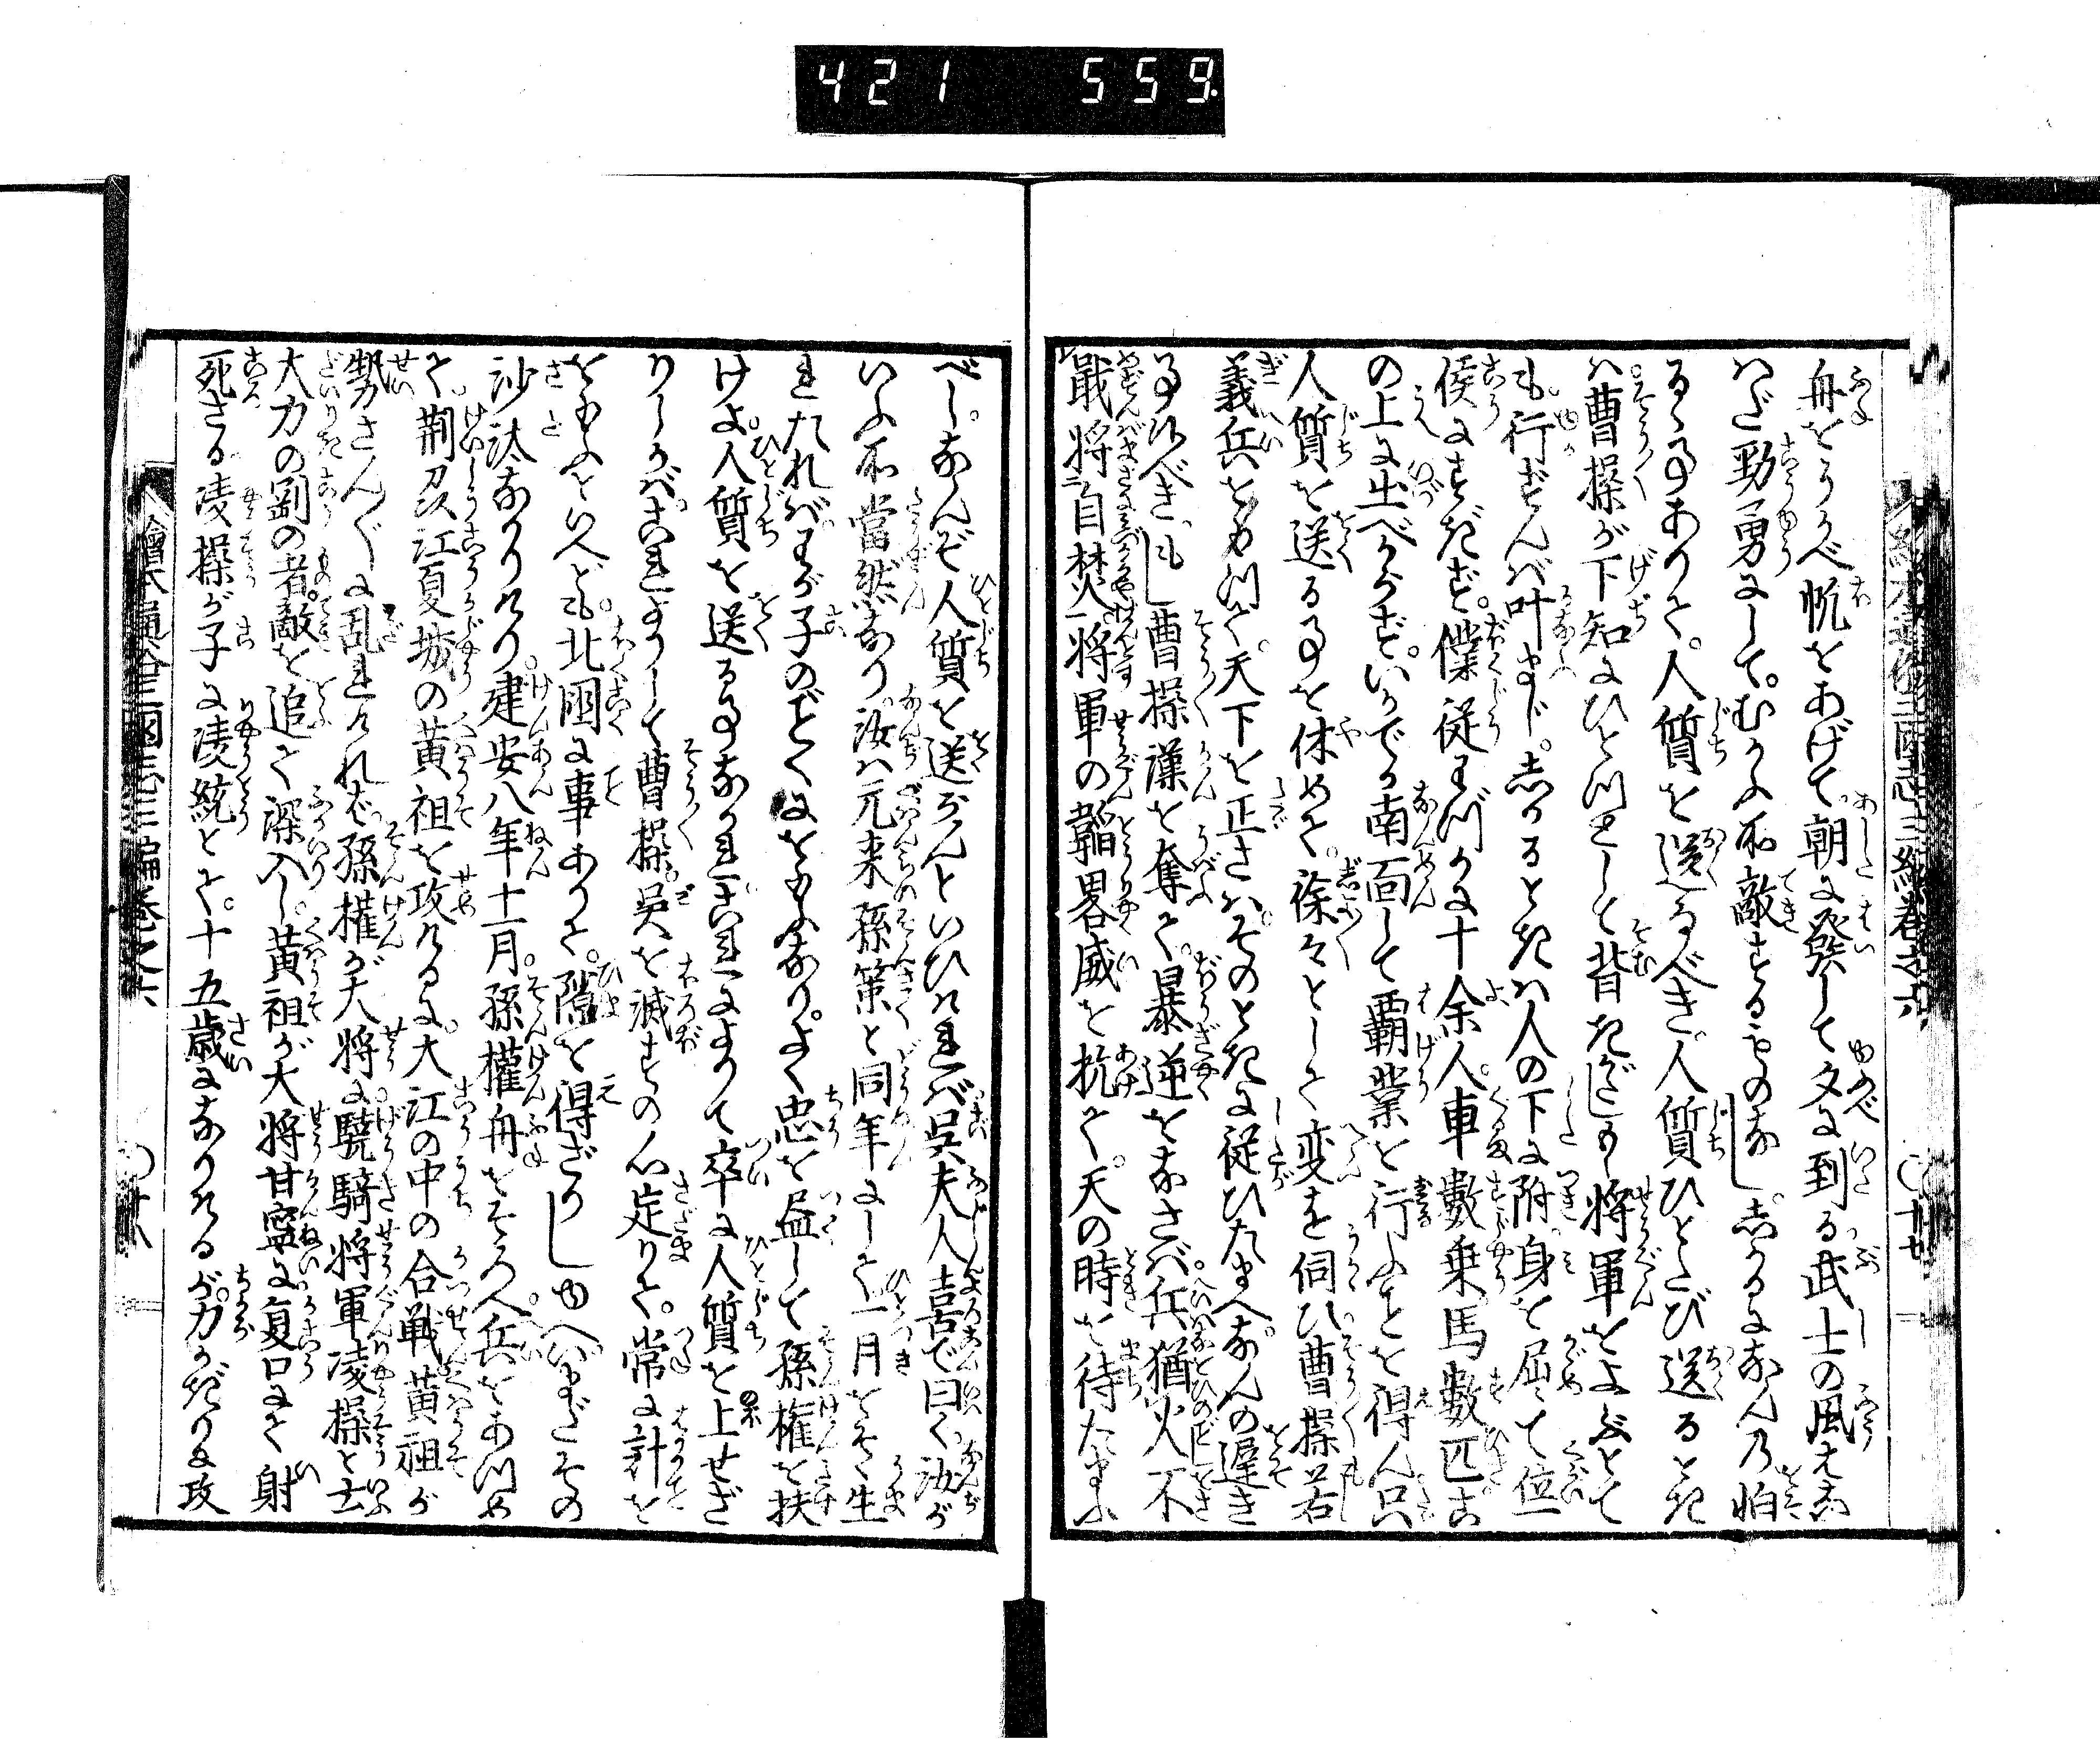 421 559
舟をうかべ帆をあげて朝に發して夕に到る武士の風はな
はだ勁勇にしてむかふ所敵するものなししかるになんの怕
るゝ事ありて人質を送るべき人質ひとたび送るとき
は曹操が下知にひとつとして背きがたし将軍をよぶとて
も行ずんば叶まじしかるときは人の下に附身を屈て位一
侯にすぎず僕従わづかに十余人車數乗馬數匹こ
の上に出べからずいかでか南面して覇業を行ふことを得ん只
人質を送る事を休めて徐々として変を伺ひ曹操若
義兵をあげて天下を正さばそのときに従ひたまへなんの遅き
事候べきもし曹操漢を奪て暴逆をなさば兵猶火不
戢将自焚将軍の韜畧威を抗て天の時を待たまふ
べしなんぞ人質を送らんといひければ呉夫人喜で曰く汝が
いふ所當然なり汝は元来孫策と同年にして一月をそく生
れたればわが子のごとくにをもふなりよく忠を盡して孫権を扶
けよ人質を送る事なかれこれによりて卒に人質を上せざ
りしかばこれよりして曹操呉を滅すの心定りて常に計を
をもふといへども北國に事ありて隙を得ざりしゆへいまだその
沙汰なかりけり建安八年十一月孫權舟をそろへ兵をあつめ
て荊州江夏城の黄祖を攻けるに大江の中の合戦黄祖が
勢さんざんに乱れければ孫權が大将に驍騎将軍凌操と云
大力の剛の者敵を追て深入し黄祖が大将甘寧に夏口にて射
死さる凌操が子に凌統とて十五歳になりけるが力かぎりに攻
繪本通俗三國志三編巻之六 〇廿七
繪本通俗三國志三編巻之六 〇廿八